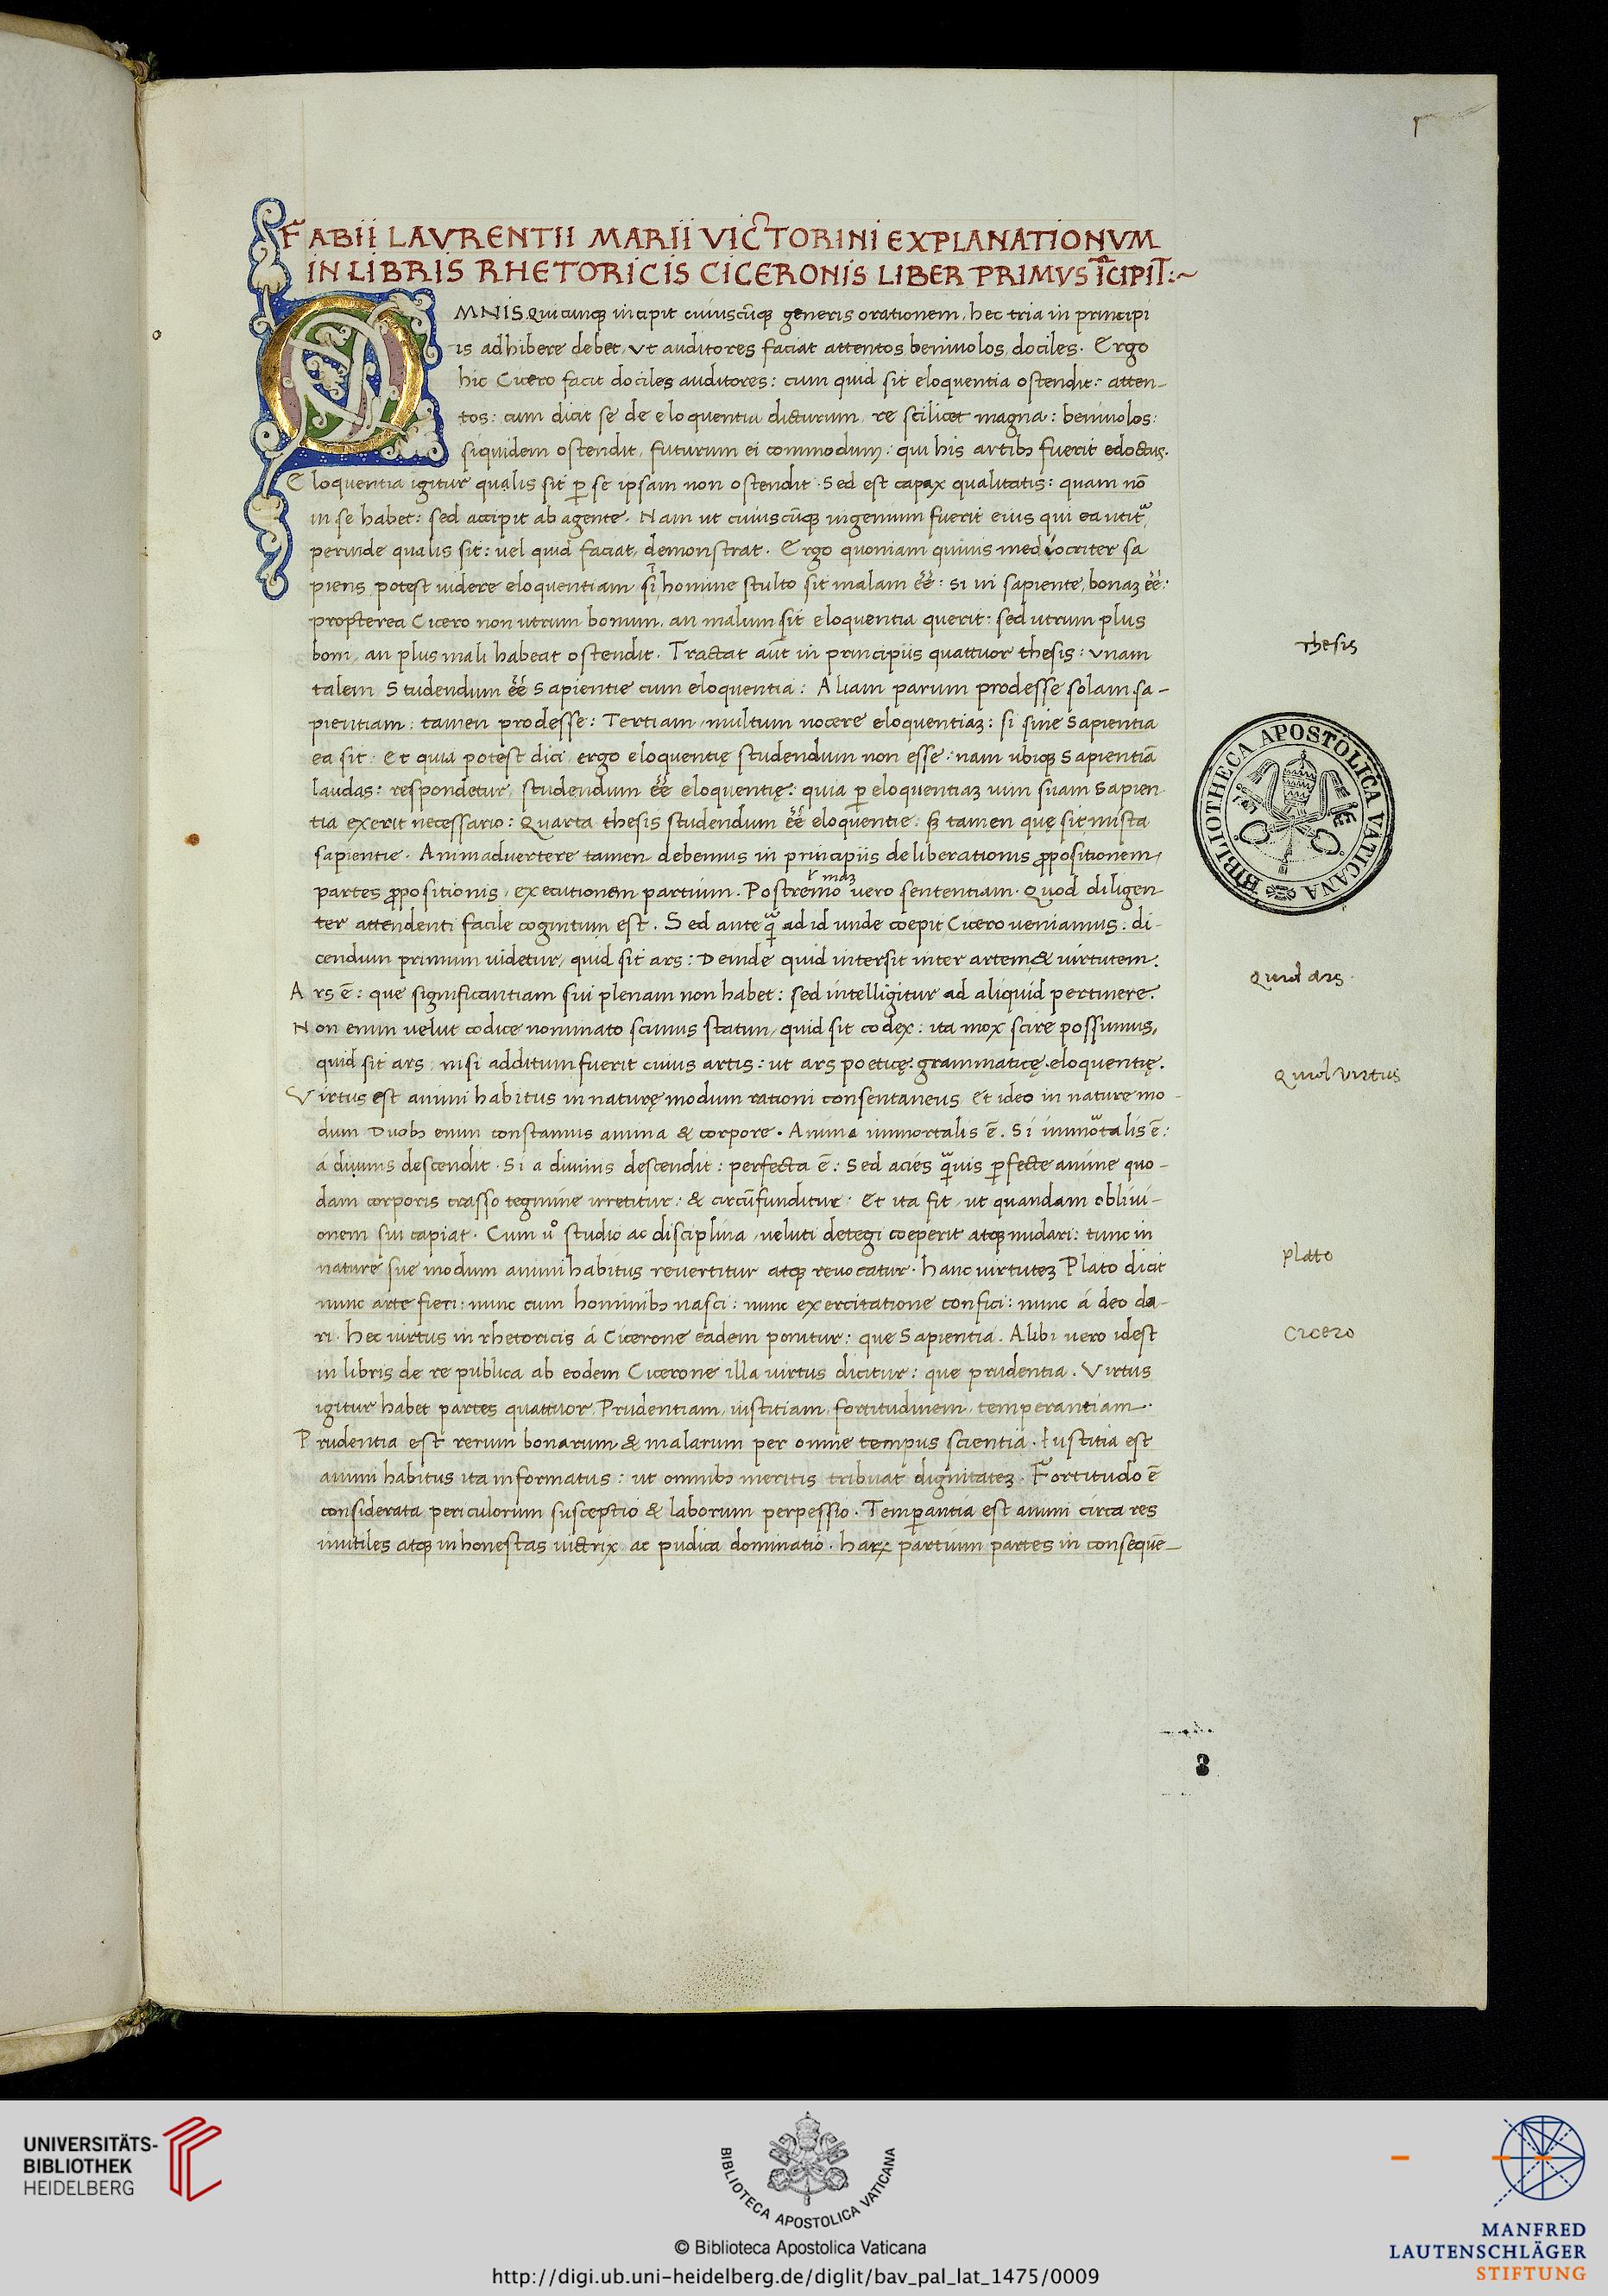 FABII LAVRENTII MARII VICTORINI EXPLANATIONVM
IN LIBRIS RHETORICIS CICERONIS LIBER PRIMVS ĪCIPIT:~
OMNIS quicunqꝫ incipit cuiuscūqꝫ generis orationem, hec tria in principi
is adhibere debet, vt auditores faciat attentos, beniuolos, dociles. Ergo
hic Cicero facit dociles auditores: cum quid sit eloquentia ostendit: atten-
tos: cum dicit se de eloquentia dicturum, re scilicet magna: beniuolos:
siquidem ostendit, futurum ei commodum: qui his artibꝫ fuerit edoctus.
Eloquentia igitur qualis sit ꝑ se ipsam non ostendit. Sed est capax qualitatis: quam nō
in se habet: sed accipit ab agente. Nam ut cuiuscūqꝫ ingenium fuerit eius qui ea utit᷑,
perinde qualis sit: uel quid faciat, demonstrat. Ergo quoniam quiuis mediocriter sa
piens potest uidere eloquentiam si ī homine stulto sit malam ēē: si in sapiente, bonaꝫ ēē:
propterea Cicero non utrum bonum, an malum sit eloquentia querit: sed utrum plus
boni, an plus mali habeat ostendit. Tractat aūt in principiis quattuor thesis: vnam
talem Studendum ēē Sapientie cum eloquentia: Aliam parum prodesse solam sa-
pientiam: tamen prodesse: Tertiam, multum nocere eloquentiaꝫ: si sine Sapientia
ea sit. Et quia potest dici, ergo eloquentię studendum non esse: nam ubiqꝫ Sapientiā
laudas: respondetur, studendum ēē eloquentię: quia ꝑ eloquentiaꝫ uim suam Sapien
tia exerit necessario: Quarta thesis studendum ēē eloquentie: sꝫ tamen que sit mista
sapientie. Animaduertere tamen debemus in principiis deliberationis ꝓpositionem,
partes ꝓpositionis, executionem partium. Postremo vero sententiam. Quod diligen
ter attendenti facile cognitum est. Sed ante q̄ ad id unde coepit Cicero ueniamus: di-
cendum primum uidetur, quid sit ars: Deinde quid intersit inter artem & uirtutem.
Ars ē: que significantiam sui plenam non habet: sed intelligitur ad aliquid pertinere.
Non enim velut codice nominato scimus statim, quid sit codex: ita mox scire possumus,
quid sit ars: nisi additum fuerit cuius artis: ut ars poeticę. grammaticę. eloquentię.
Virtus est animi habitus in naturę modum rationi consentaneus. Et ideo in nature mo-
dum Duobꝫ enim constamus anima & corpore. Anima immortalis ē. Si immortalis ē:
á diuinis descendit. Si a diuinis descendit: perfecta ē: Sed acies q̄uis ꝑfecte anime quo-
dam corporis crasso tegmine irretitur: & circūfunditur: Et ita fit, ut quandam obliui-
onem sui capiat. Cum uº studio ac disciplina, veluti detegi coeperit atqꝫ nudari: tunc in
nature sue modum animi habitus reuertitur atqꝫ reuocatur. hanc uirtuteꝫ Plato dicit
nunc arte fieri: nunc cum hominibꝫ nasci: nunc exercitatione confici: nunc á deo da-
ri. hec uirtus in rhetoricis á Cicerone eadem ponitur: que Sapientia. Alibi uero idest
in libris de re publica ab eodem Cicerone illa uirtus dicitur: que prudentia. Virtus
igitur habet partes quattuor, Prudentiam, iustitiam, fortitudinem, temperantiam.
Prudentia est rerum bonarum & malarum per omne tempus scientia. Iustitia est
animi habitus ita informatus: ut omnibꝫ meritis tribuat dignitateꝫ. Fortitudo ē
considerata periculorum susceptio & laborum perpessio. Temꝑantia est animi circa res
inutiles atqꝫ inhonestas uictrix ac pudica dominatio. haꝝ partium partes in conseqūe-
Thesis
Quid ars.
Quid virtus
Plato
Cicero
BIBLIOTHECA APOSTOLICA VATICANA
UNIVERSITÄTS-
BIBLIOTHEK
HEIDELBERG
BIBLIOTECA APOSTOLICA VATICANA
© Biblioteca Apostolica Vaticana
http://digi.ub.uni-heidelberg.de/diglit/bav_pal_lat_1475/0009
MANFRED
LAUTENSCHLÄGER
STIFTUNG